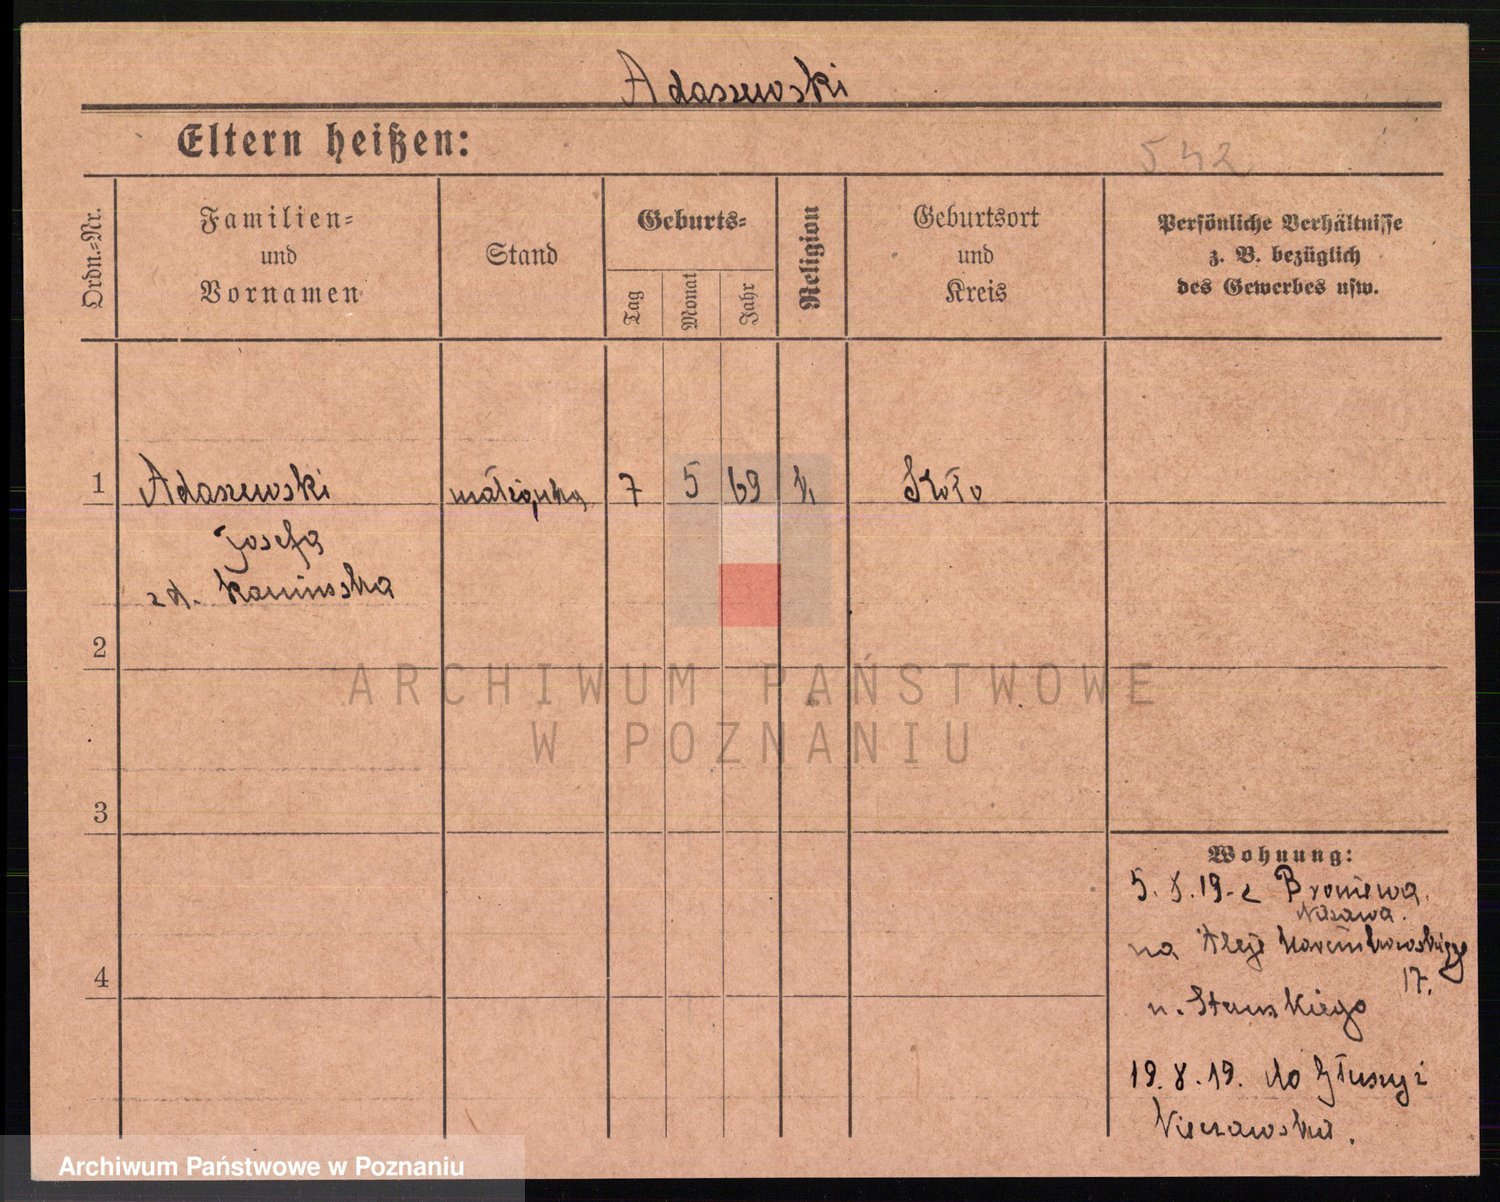 Adaszewski
Eltern heißen:
542
Ordn.=Nr.
Familien=
und
Vornamen
Stand
Geburts=
Tag
Monat
Jahr
Religion
Geburtsort
und
Kreis
Persönliche Verhältnisse
z. B. bezüglich
des Gewerbes usw.
1 Adaszewski małżonka 7 5 69 k Koło
Josefa
zd. Kaminska
2
ARCHIWUM PAŃSTWOWE
W POZNANIU
3
Wohnung:
5. 8. 19. z Broniewa
na Aleje Marcinkowskiego
17.
4
u.
19. 8. 19. do
Archiwum Państwowe w Poznaniu